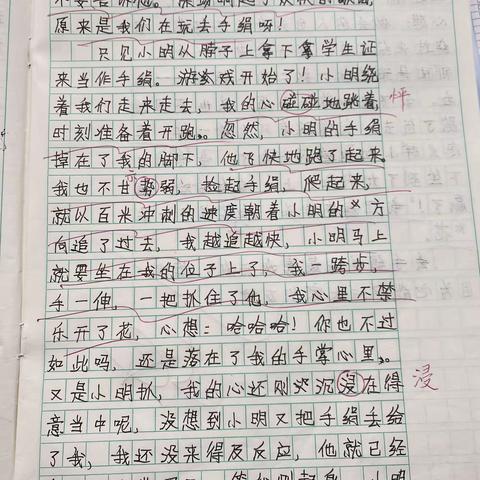 原来是我们在玩丢手绢呀！
只见小明从脖子上拿下拿学生证
来当作手绢。游戏开始了！小明绕
着我们走来走去，我的心碰碰地跳着，怦
时刻准备着开跑。忽然，小明的手绢
掉在了我的脚下，他飞快地跑了起来。
我也不甘弱，捡起手绢，爬起来，
就以百米冲刺的速度朝着小明的方
向追了过去，我越追越快，小明马上
就要坐在我的位子上了，我一跨步，
手一伸，一把抓住了他，我心里不禁
乐开了花，心想：哈哈哈！你也不过
如此吗，还是落在了我的手掌心里。
又是小明扒，我的心还刚沉浸在得浸
意当中呢，没想到小明又把手绢丢给
了我，我还没来得及反应，他就已经